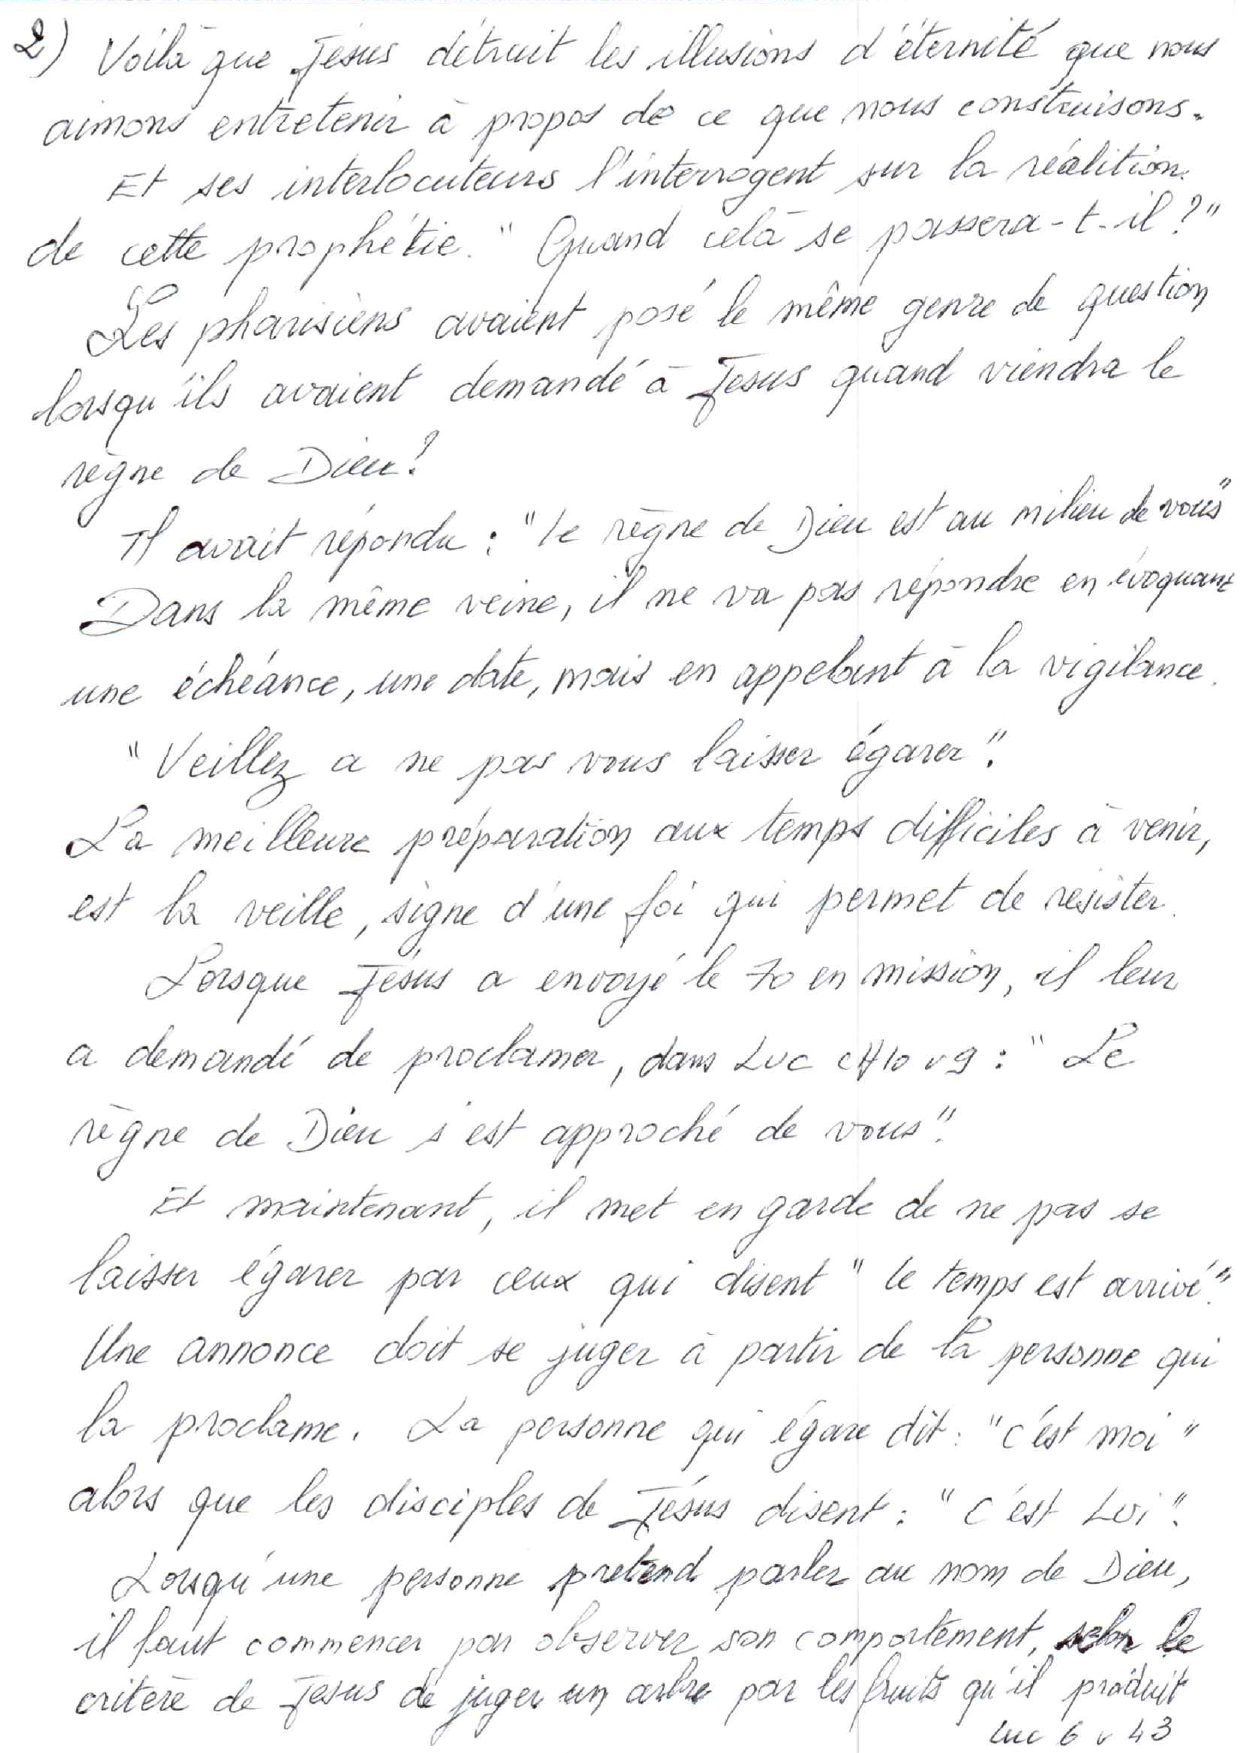 2) Voilà que Jésus détruit les illusions d'éternité que nous
aimons entretenir à propos de ce que nous construisons.
Et ses interlocuteurs l'interrogent sur la réalition
de cette prophétie. "Quand celà se passera-t-il?"
Les pharisiens avaient posé le même genre de question
lorsqu'ils avaient demandé à Jesus quand viendra le
règne de Dieu?
Il avait répondu : "le règne de Dieu est au milieu de vous"
Dans la même veine, il ne va pas répondre en évoquant
une échéance, une date, mais en appelant à la vigilance.
"Veillez a ne pas vous laisser égarer".
La meilleure préparation aux temps difficiles à venir,
est la veille, signe d'une foi qui permet de résister.
Lorsque Jésus a envoyé le 70 en mission, il leur
a demandé de proclamer, dans Luc CH10 v9 : "Le
règne de Dieu s'est approché de vous".
Et maintenant, il met en garde de ne pas se
laisser égarer par ceux qui disent "le temps est arrivé".
Une annonce doit se juger à partir de la personne qui
la proclame. La personne qui égare dit : "c'est moi"
alors que les disciples de Jésus disent : "c'est Lui".
Lorsqu'une personne pretend parler au nom de Dieu,
il faut commencer par observer son comportement, selon le
critère de Jesus de juger un arbre par les fruits qu'il produit
Luc 6 v 43